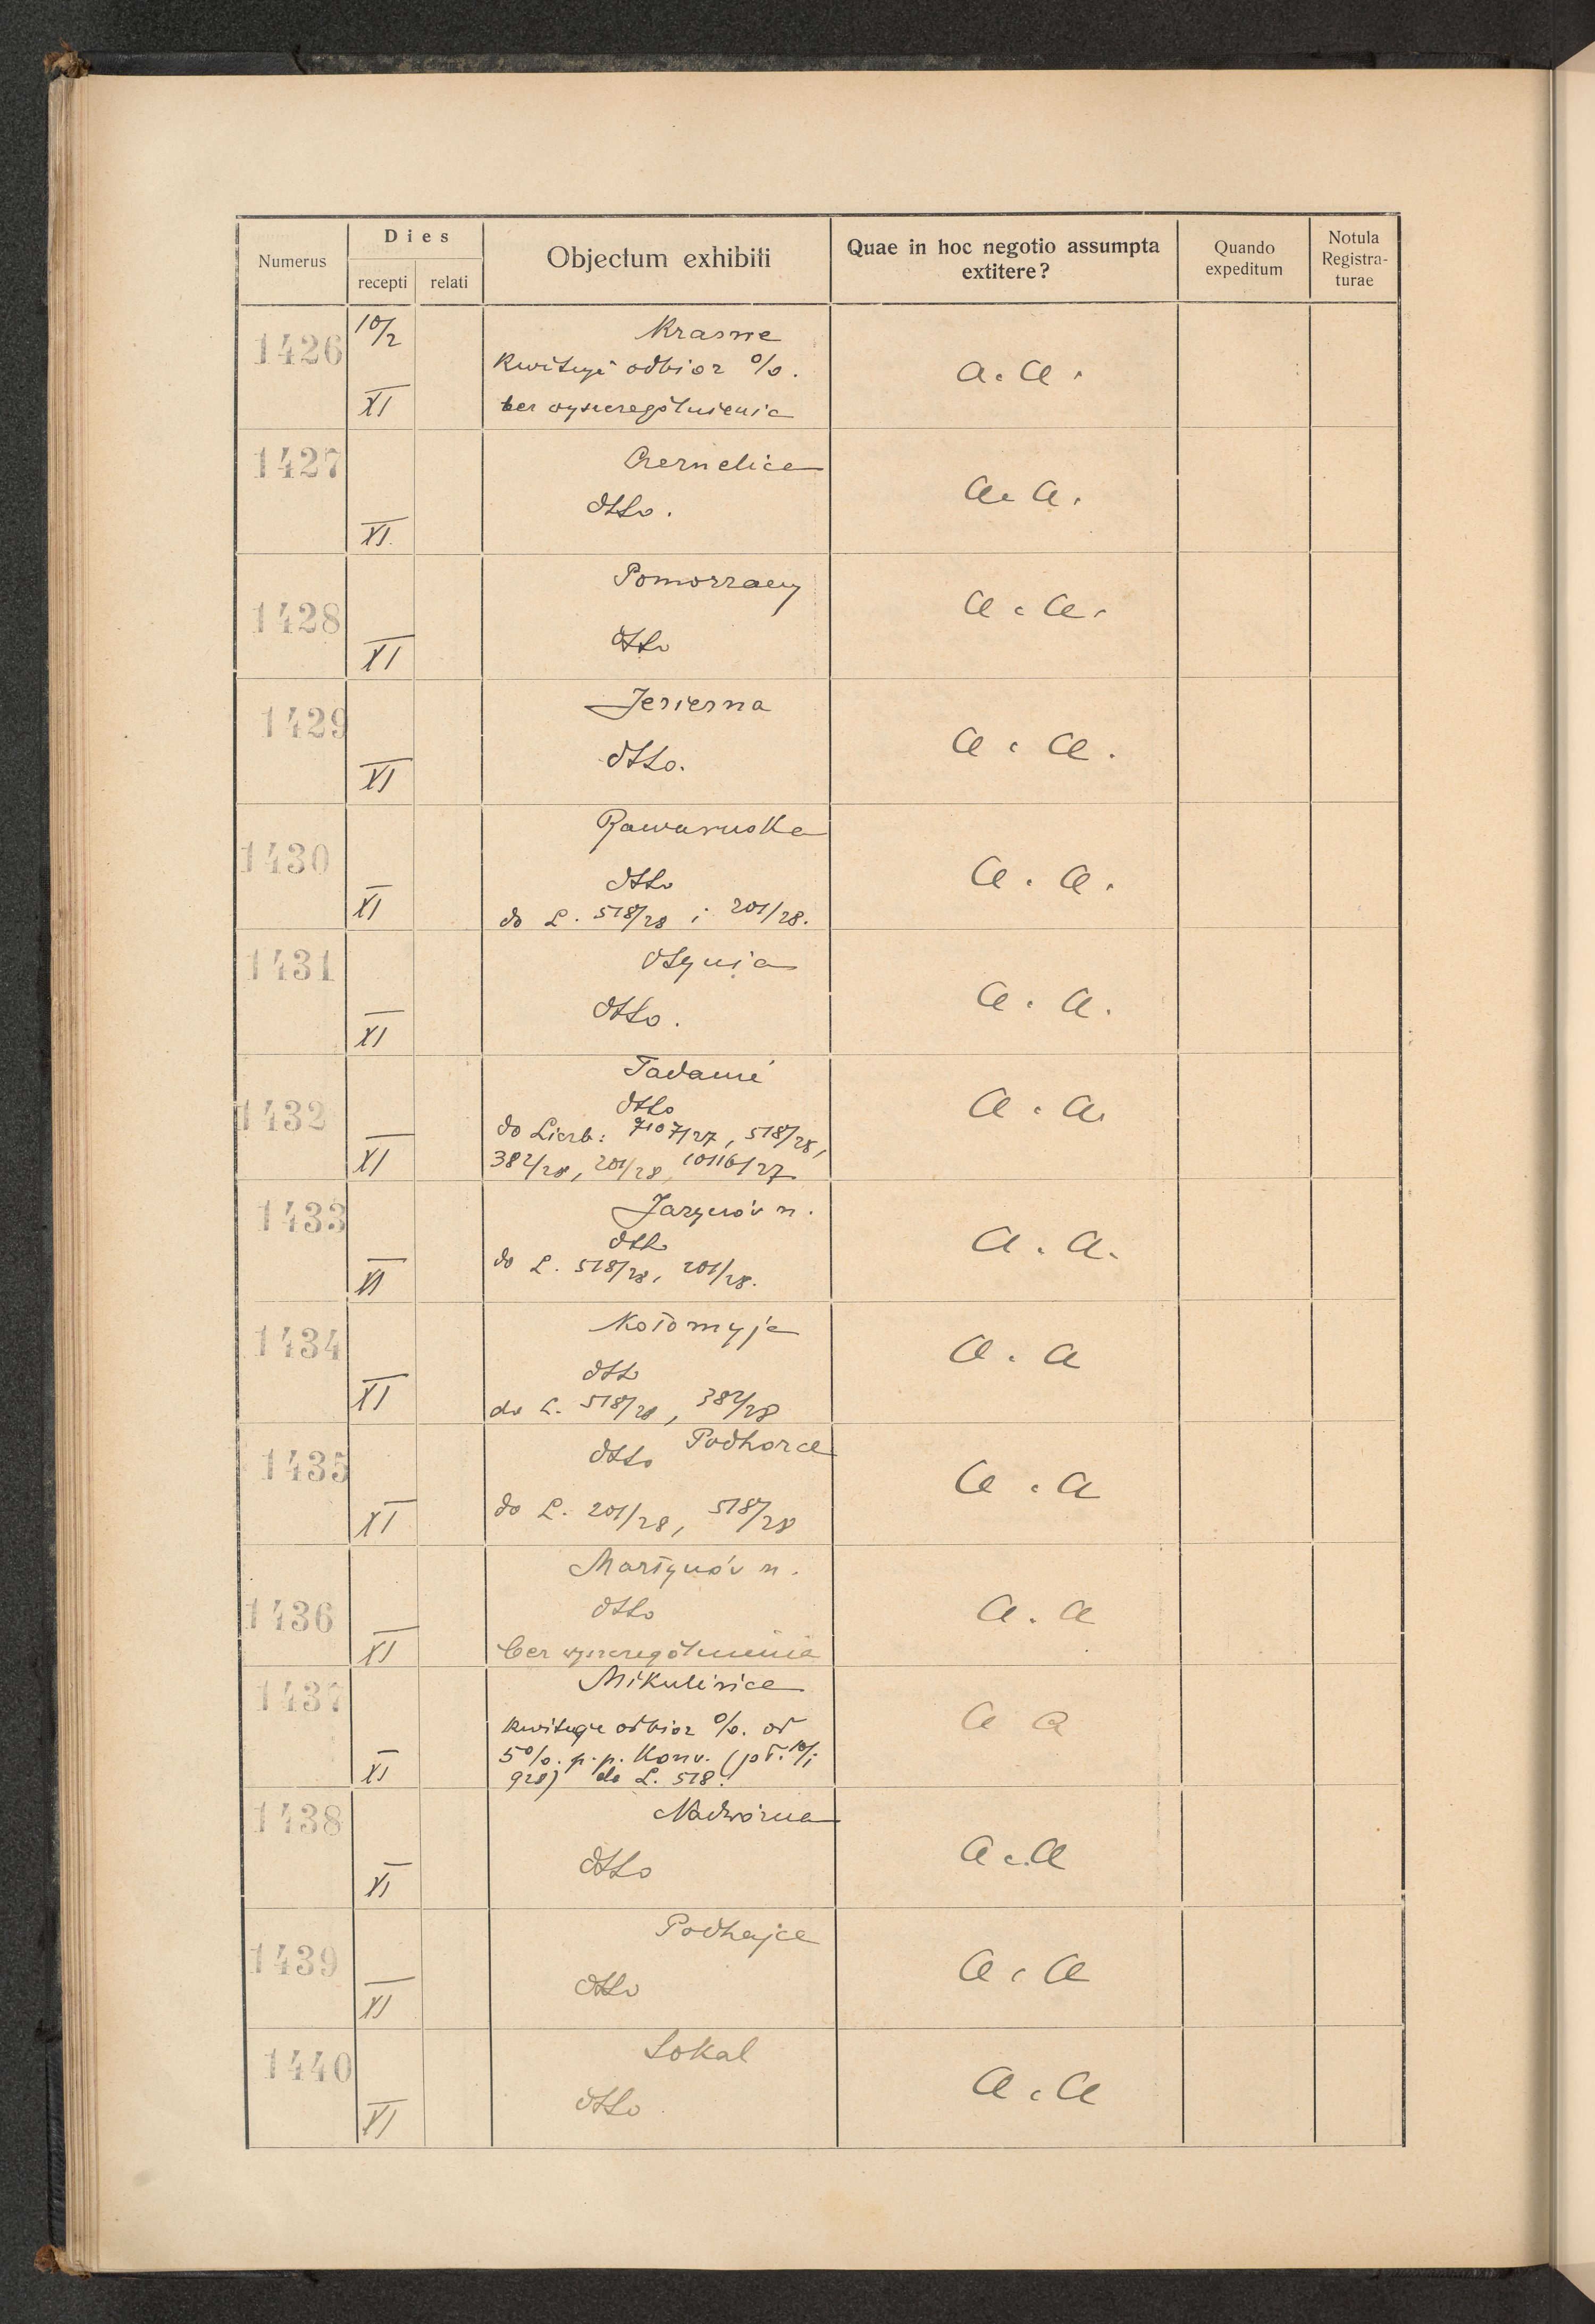 Numerus
Dies
recepti relati
Objectum exhibiti
Quae in hoc negotio assumpta
extitere?
Quando
expeditum
Notula
Registra-
turae
1426 10/2 Krasne
Kwituje odbior %. a. a.
XI bez wyszczególnienia
1427 Czernelica
dtto. a. a.
XI
1428 Pomorzany
dtto a. a.
XI
1429 Jezierna
dtto. a. a.
XI
1430 Rawaruska
dtto a. a.
XI do L. 518/28 i 201/28.
1431 Otynia
dtto. a. a.
XI
1432 Tadanie
dtto a. a.
do Liczb: 7107/27, 518/28,
XI 382/28, 201/28, 10116/27
1433 Jaryczów n.
dtto a. a.
XI do L. 518/28, 201/28.
1434 Kołomyja
dtto a. a
XI do L. 518/28, 382/28
1435 Podhorce
dtto a. a
XI do L. 201/28, 518/28
1436 Martynów n.
dtto a. a
XI bez wyszczególnienia
1437 Mikulińce
Kwituje odbior %. od a a
5%. p.p. Konw. (pł. 10/i
XI 928) do L. 518.
1438 Nadwórna
dtto a. a
XI
1439 Podhajce
dtto a. a
XI
1440 Sokal
dtto a. a
XI